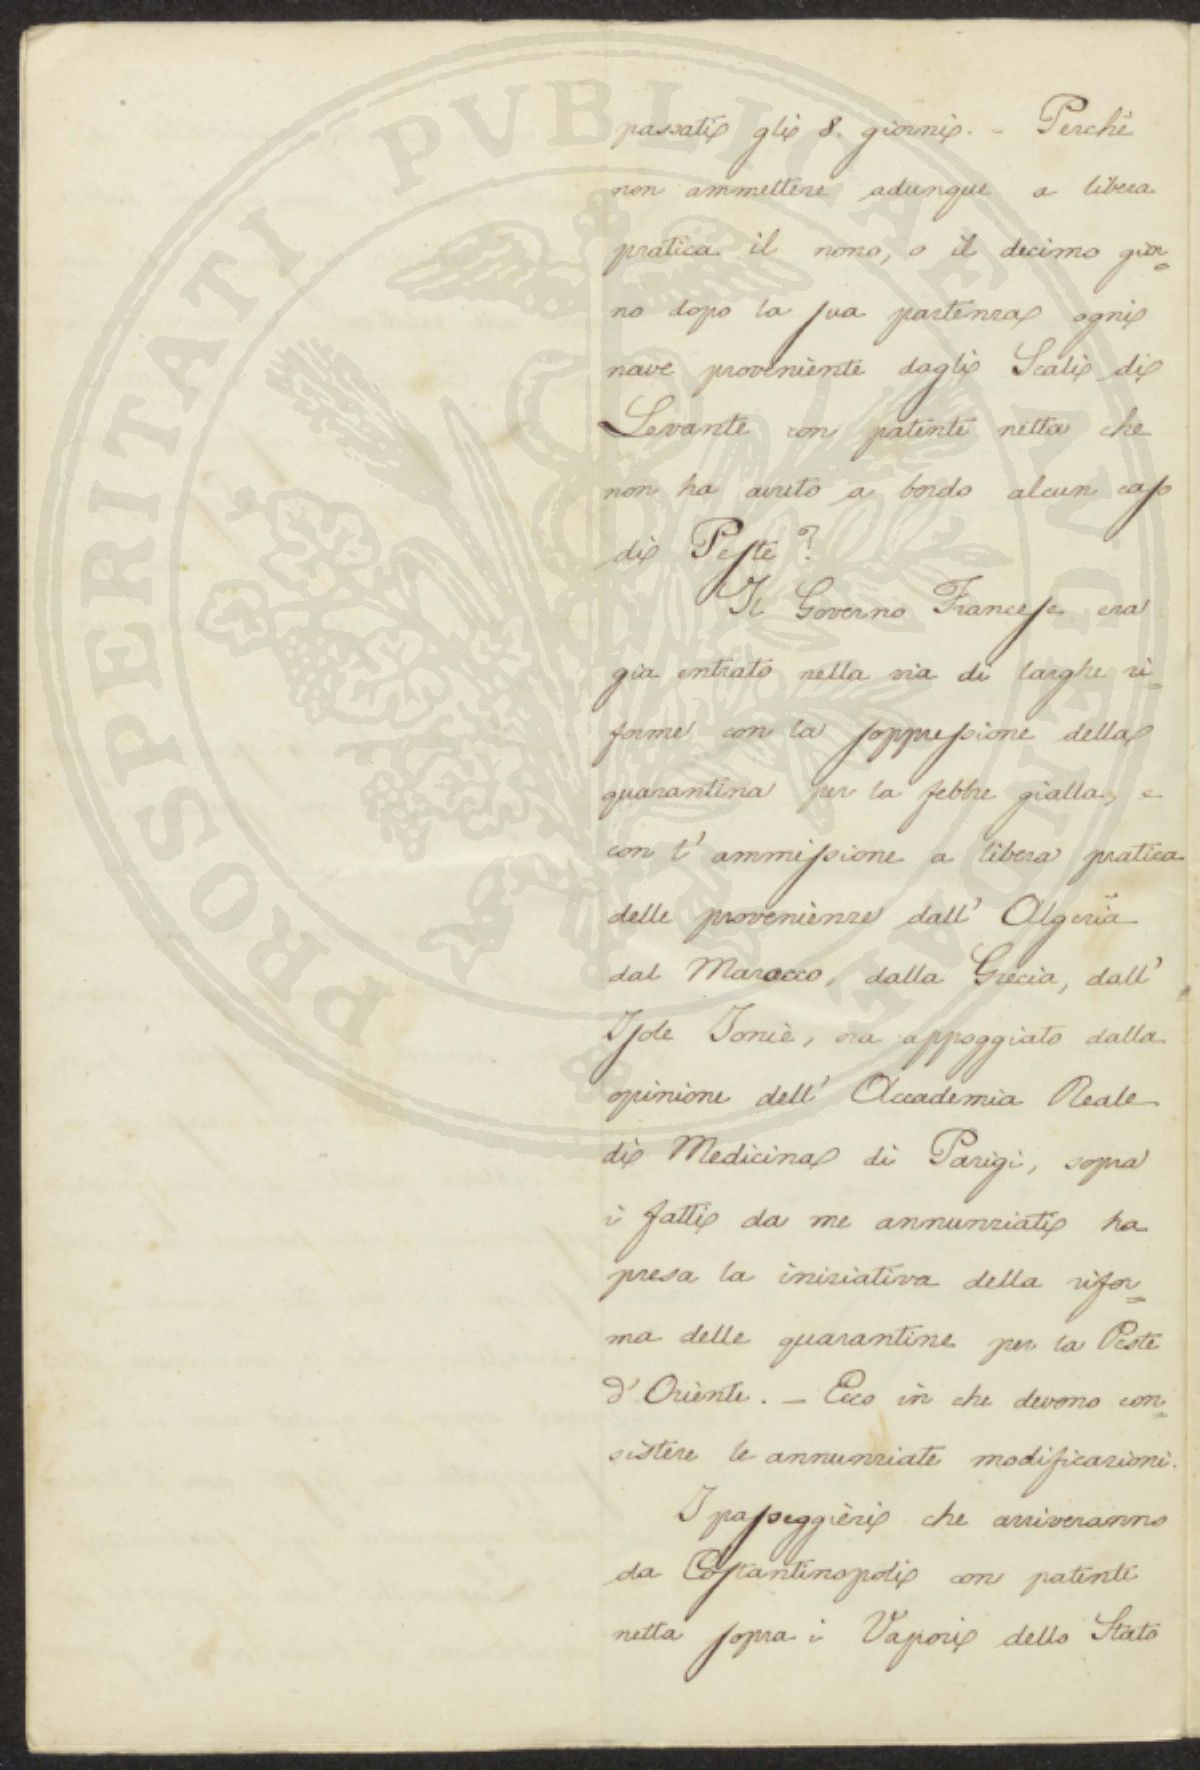 passati gli 8. giorni. – Perché
non ammettere adunque a libera
pratica il nono, o il decimo gior=
no dopo la sua partenza ogni
nave proveniente dagli Scali di
Levante con patente netta che
non ha avuto a bordo alcun caso
di Peste?
Il Governo Francese era
gia entrato nella via di larghe ri=
forme con la soppressione della
quarantina per la febbre gialla, e
con l'ammissione a libera pratica
delle provenienze dall'Algeria
dal Marocco, dalla Grecia, dall'
Isole Jonie, ora appoggiato dalla
opinione dell'Accademia Reale
di Medicina di Parigi, sopra
i fatti da me annunziati ha
presa la iniziativa della rifor=
ma delle quarantine per la Peste
d'Oriente. – Ecco in che devono con=
sistere le annunziate modificazioni.
I passeggieri che arriveranno
da Costantinopoli con patente
netta sopra i Vapori dello Stato
PROSPERITATI PVBLICAE AVGENDAE